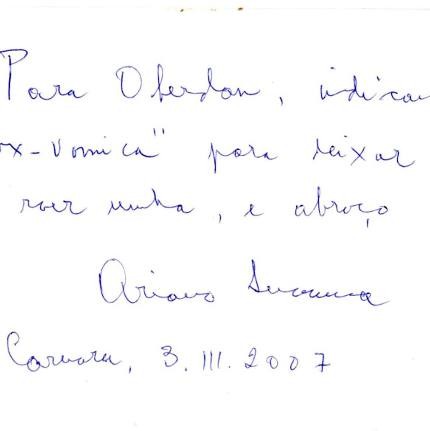 Para Oberdan, indican
ox-vomica" para deixar
roer unha, e abraço
Ariano Suassuna
Caruaru, 3.III.2007